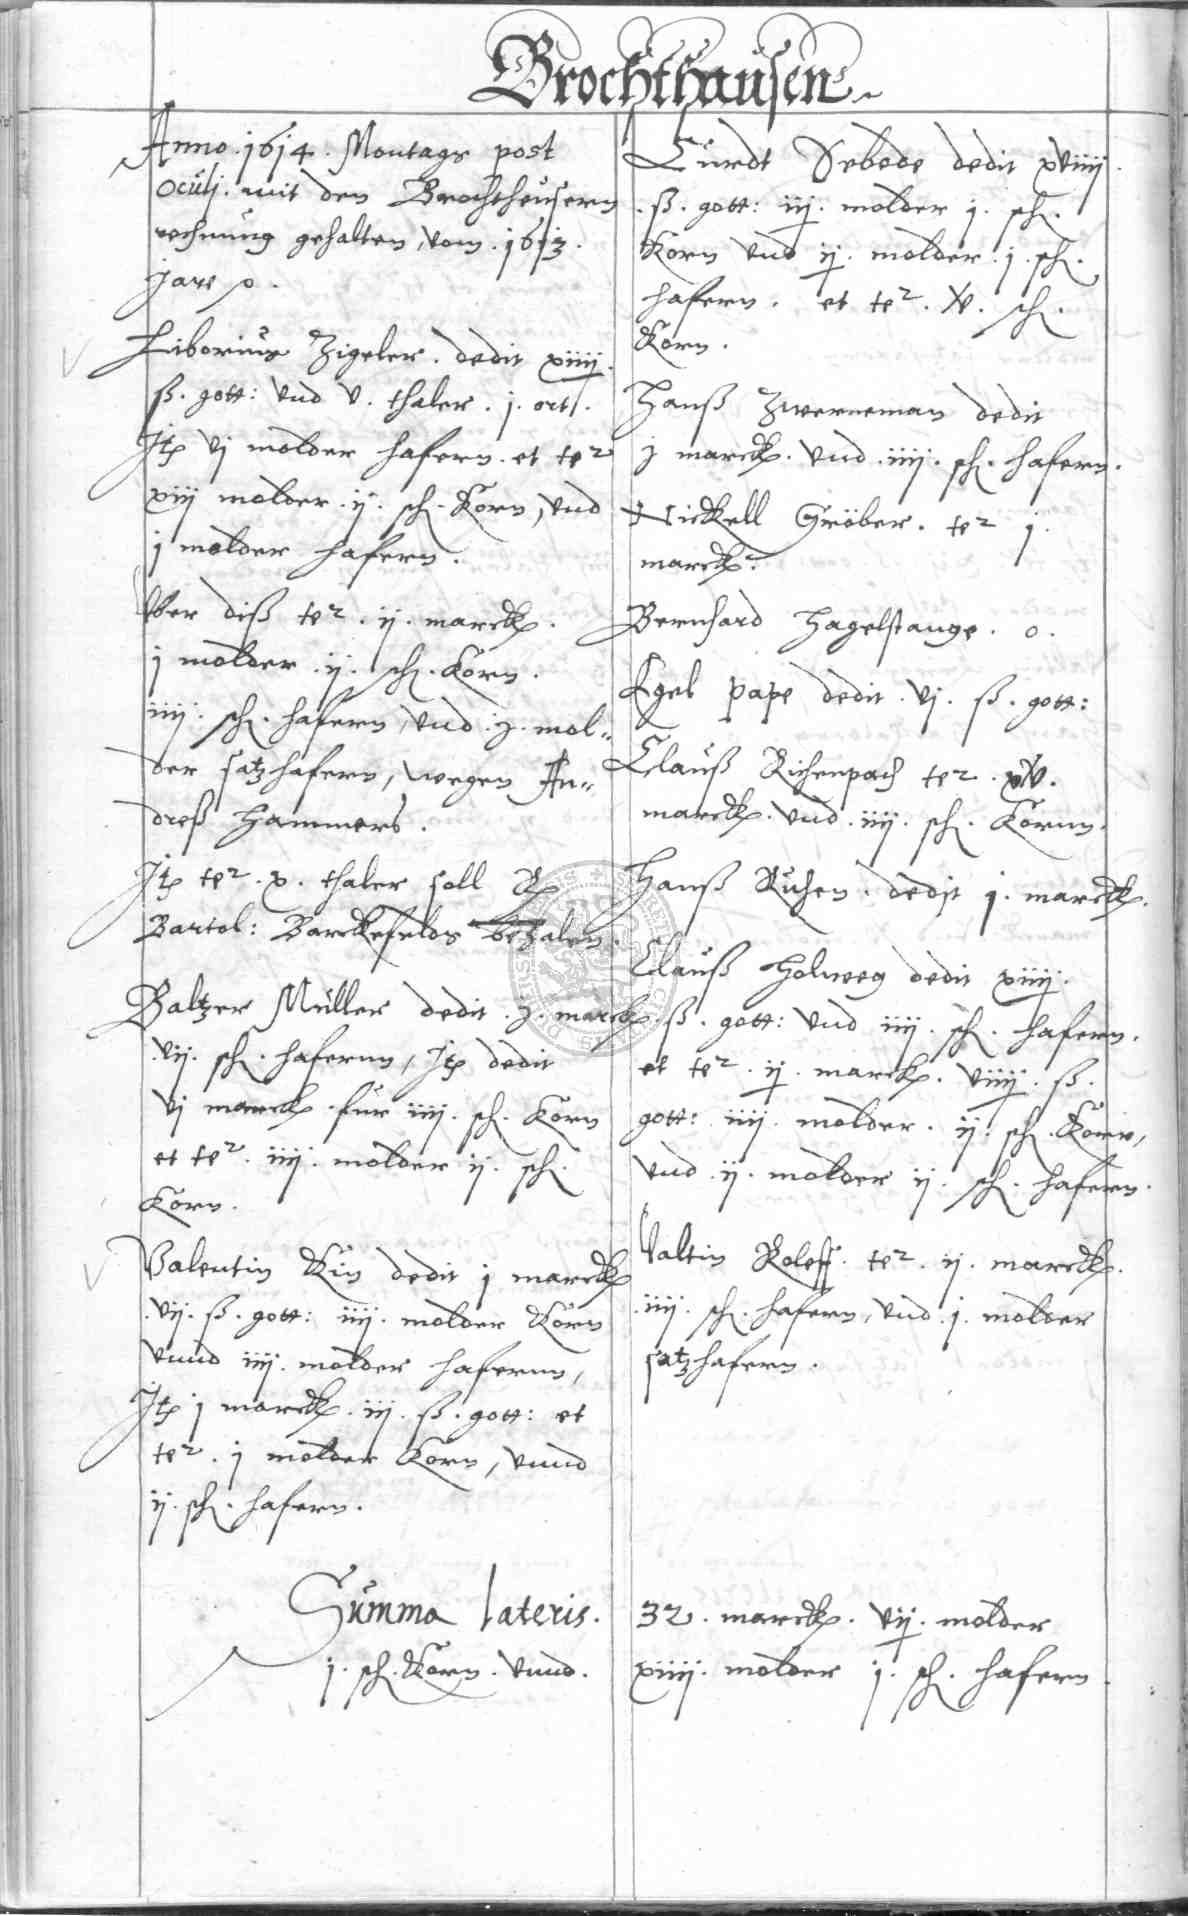 Brochthausen
Anno .1614. Montags post
Oculj. mit den Brochtheusern
rechnung gehalten, vom .1613.
jare p.
Liborius Zigeler. dedit xiiij.
ß. gott: vnd v. thaler. j. ort.
Jtem vj molder hafern. et te2
xiij molder .ij. sch. Korn, vnd
j molder hafern.
Vber diß te2. ij. marck.
j molder .ij. sch. Korn.
iiij. sch. hafern, vnd .j. mol„
der satzhafern, wegen An„
dreß Hammers.
Jtem te2. x. thaler soll
Bartol: Barckefeldt bezalen.
Baltzer Müller dedit .j. marck.
.vij. sch. hafernn, Jtem dedit
vj marck. für iiij. sch. Korn
et te2. iiij. molder ij. sch.
Korn.
Valentin Kün dedit j marck
.vij. ß. gott: iiij. molder Korn
vnnd iiij. molder hafernn,
Jtem j marck. iij. ß. gott: et
te2. j molder Korn, vnnd
ij. sch. hafern.
Curdt Sebode dedit xviiij.
.ß. gott: iij. molder j. sch.
Korn vnd ij. molder .j. sch.
hafern. et te2. v. sch.
Korn.
Hanß Zwerneman dedit
j marck. vnd .iiij. sch. hafern.
Nickell Gröber. te2 j.
marck.
Bernhard Hagelstange. o.
Egel pape dedit .vj. ß. gott:
Clauß Richenpach te2. xv.
marck. vnd .iiij. sch. Kornn.
Hanß Kuhen. dedit j. marck.
Clauß Holweg dedit xiiij.
.ß. gott: vnd iiij. sch. hafern.
et te2. ij. marck. viiij. ß.
gott: iiij. molder. ij. sch. Korn,
vnd .ij. molder ij. sch. hafern.
Valtin Roleff. te2. ij. marck.
.iiij. sch. hafern, vnd .j. molder
satzhafern.
Summa lateris. 32. marck. vij. molder
j. sch. Korn. vnnd. xiiij. molder j. sch. hafern